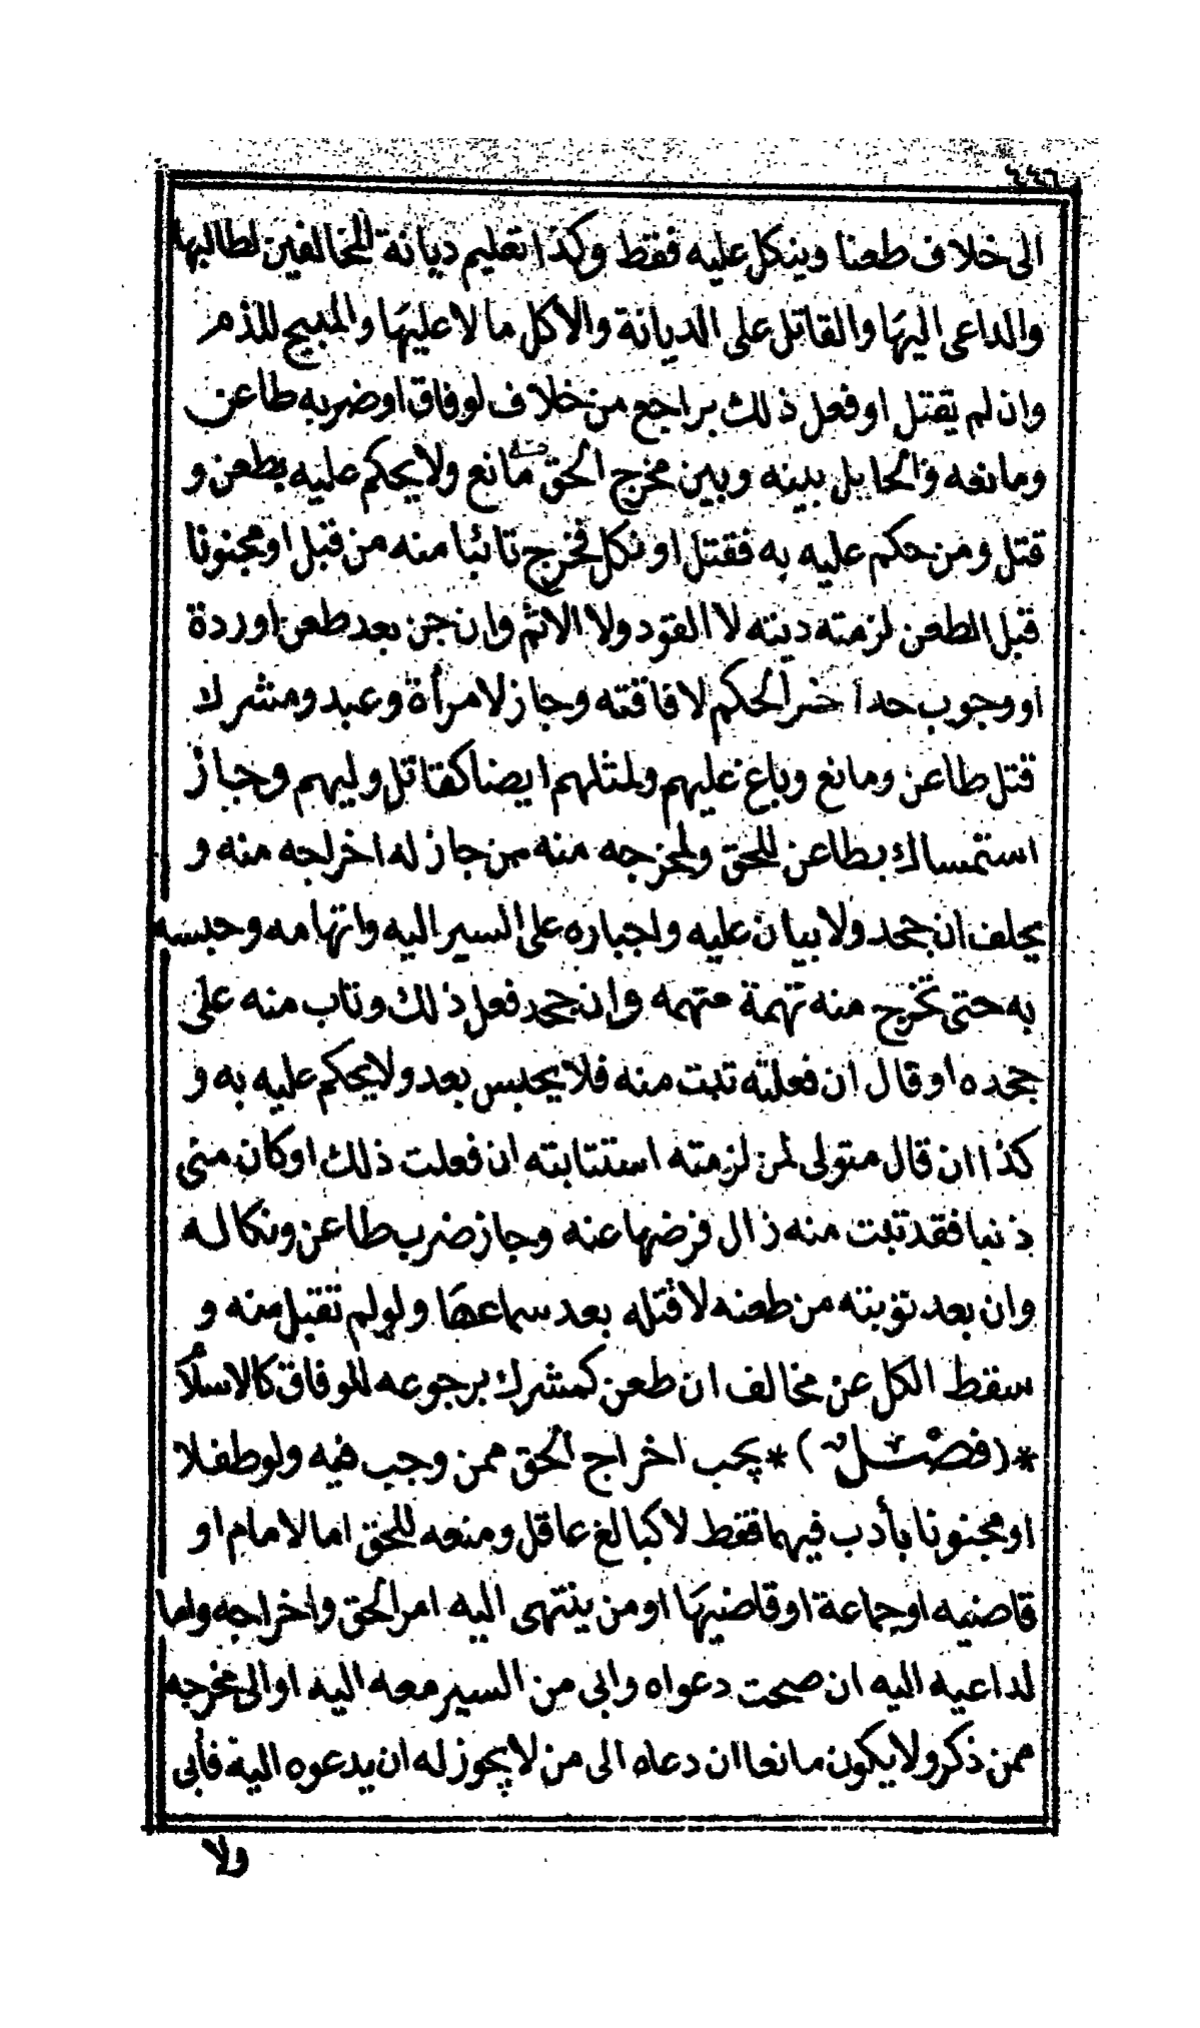 ٤٤٦
الى خلاف طعنا وينكل عليه فقط وكذا تعليم ديانة المخالفين لطالبها
والداعى اليها والقاتل على الديانة والاكل مالا عليها والمبيح للذم
وان لم يقتل او فعل ذلك براجع من خلاف لوفاق او ضربه طاعن
ومانعه والحايل بينه وبين مخرج الحق منه مانع ولا يحكم عليه بطعن و
قتل ومن حكم عليه به فقتل او نكل فخرج تائبا منه من قبل او مجنونا
قبل الطعن لزمته ديته لا القود ولا الاثم وان جن بعد طعن او ردة
او وجوب حد اخر الحكم لافاقته وجاز لامرأة وعبد ومشرك
قتل طاعن ومانع وباغ عليهم ولمثلهم ايضا كقاتل وليهم وجاز
استمساك بطاعن للحق ولمخرجه منه ممن جاز له اخراجه منه و
يحلف ان جحد ولا بيان عليه واجباره على السير اليه واتهامه وحبسه
به حتى تخرج منه تهمة متهمه وان جحد فعل ذلك وتاب منه على
جحده او قال ان فعلته تبت منه فلا يحبس بعد ولا يحكم عليه به و
كذا ان قال متولى لمن لزمته استتابته ان فعلت ذلك او كان منى
ذنبا فقد تبت منه زال فرضها عنه وجاز ضرب طاعن ونكاله
وان بعد توبته من طعنه لا قتله بعد سماعها ولو لم تقبل منه و
سقط الكل عن مخالف ان طعن كمشرك برجوعه للوفاق كالاسلام
*(فصل)* يجب اخراج الحق ممن وجب فيه ولو طفلا
او مجنونا بأدب فيهما فقط لا كبالغ عاقل ومنعه للحق اما لامام او
قاضيه او جماعة او قاضيها او من ينتهى اليه امر الحق واخراجه واما
لداعيه اليه ان صحت دعواه وابى من السير معه اليه او الى مخرجه
ممن ذكر ولا يكون مانعا ان دعاه الى من لا يجوز له ان يدعوه اليه فأبى
ولا